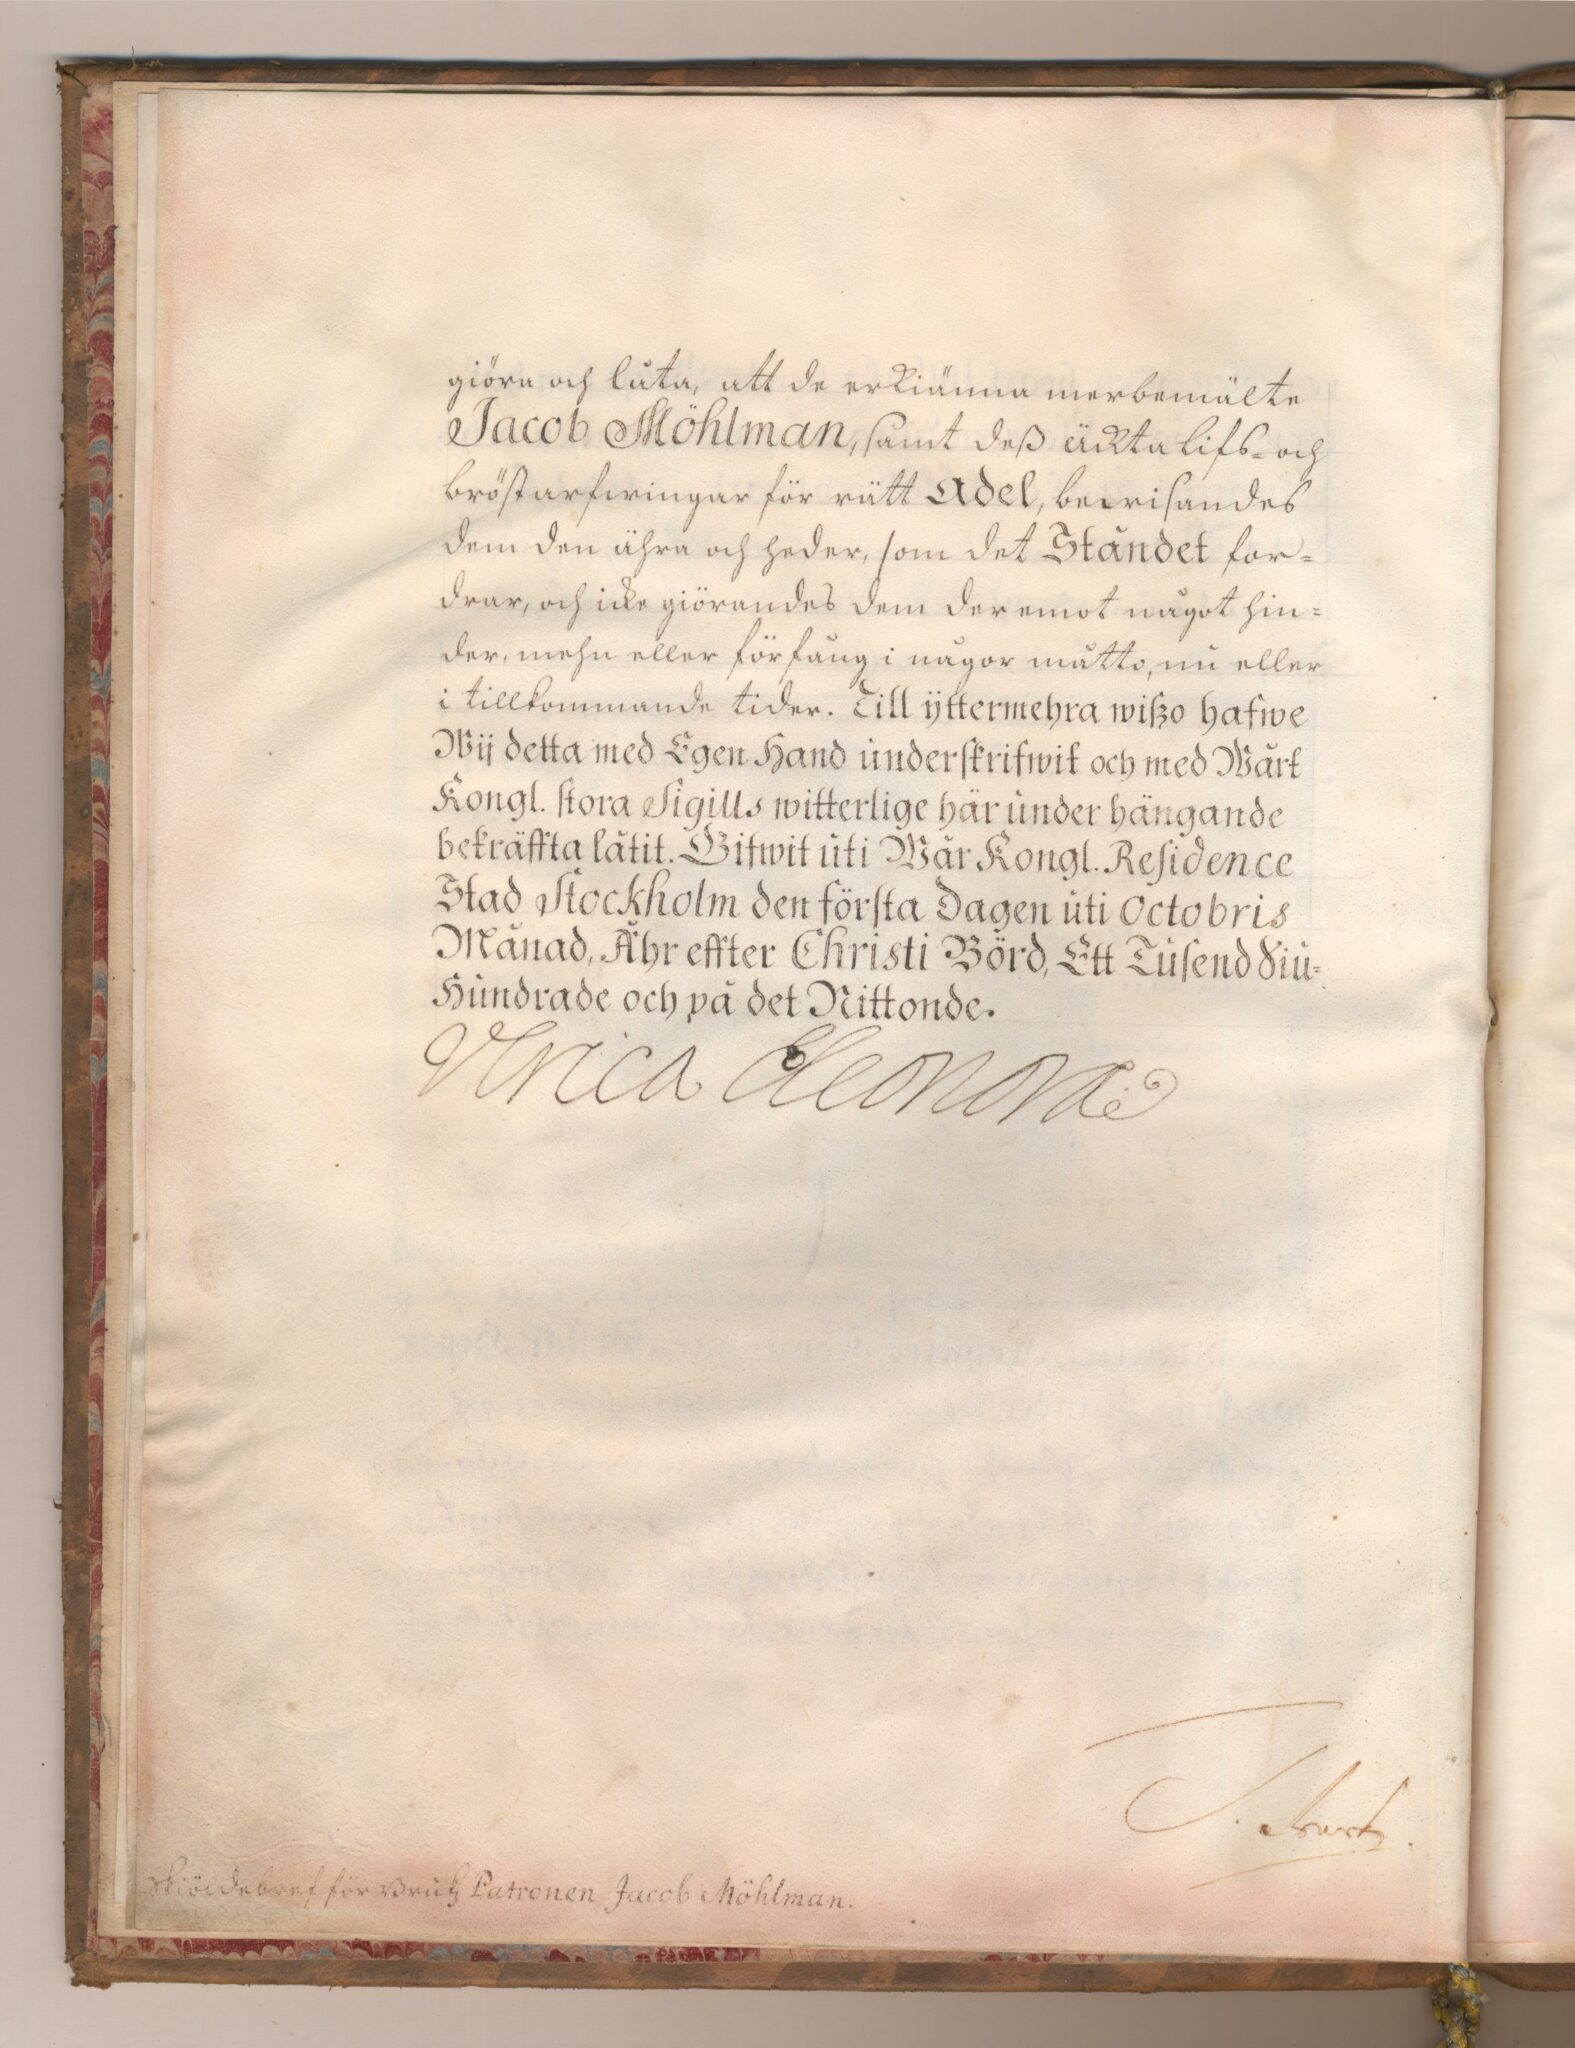 giöra och låta, att de erkiänna merbemälte
Jacob Möhlman, samt deß äckta lifs- och
bröstarfwingar för rätt Adel, bewisandes
dem den ähra och heder, som det Ståndet for-
drar, och icke giörandes dem deremot något hin-
der, mehn eller förfång i någor måtto, nu eller
i tillkommande tider. Till ÿttermehra wißo hafwe
Wij detta med Egen Hand underskrifwit och med Wårt
Kongl. stora Sigills witterlige här under hängande
bekräffta låtit. Gifwit uti Wår Kongl. Residence
Stad Stockholm den första Dagen uti Octobris
Månad, Åhr effter Christi Börd, Ett Tusend Siu-
Hundrade och på det Nittonde.
Vlrica Eleonora
Skiöldebref för Bruks Patronen Jacob Möhlman.